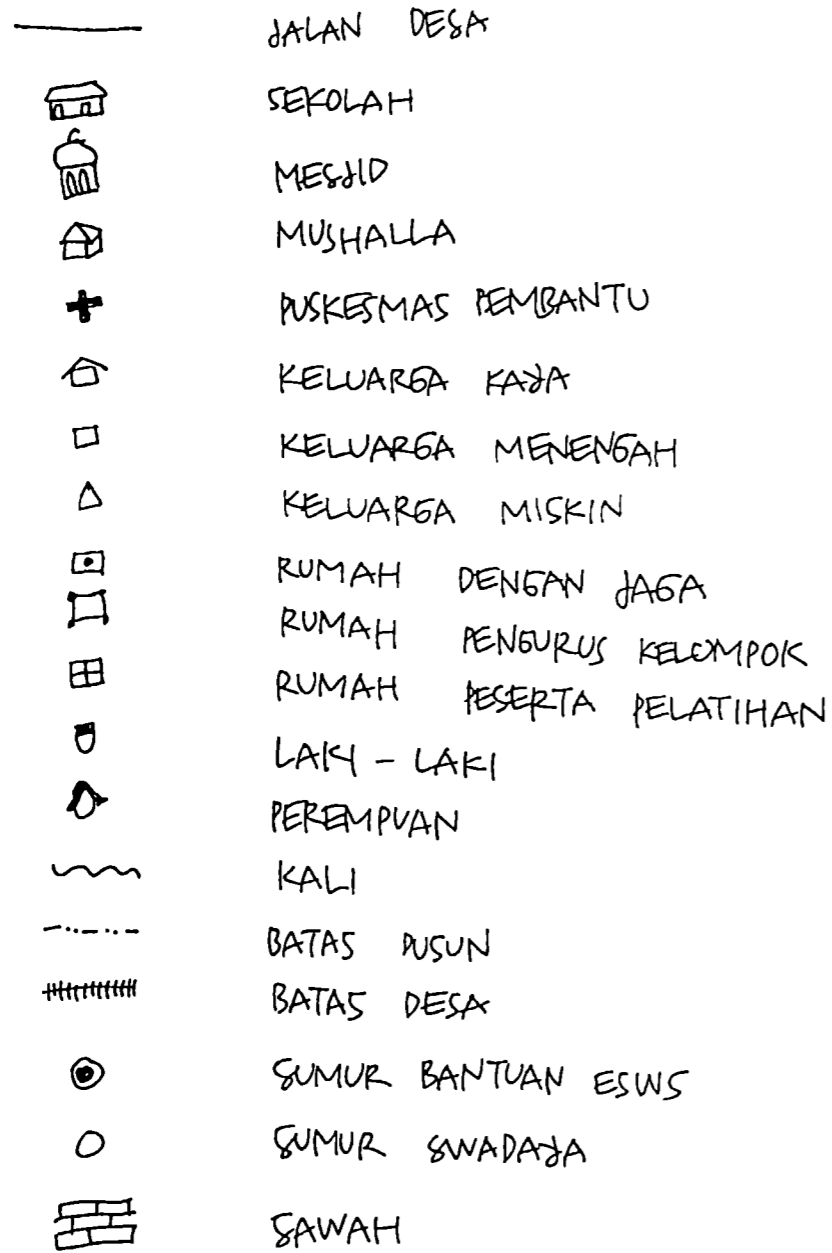 JALAN DESA
SEKOLAH
MESJID
MUSHALLA
PUSKESMAS PEMBANTU
KELUARGA KAYA
KELUARGA MENENGAH
KELUARGA MISKIN
RUMAH DENGAN JAGA
RUMAH PENGURUS KELOMPOK
RUMAH PESERTA PELATIHAN
LAKI - LAKI
PEREMPUAN
KALI
BATAS DUSUN
BATAS DESA
SUMUR BANTUAN ESWS
SUMUR SWADAYA
SAWAH